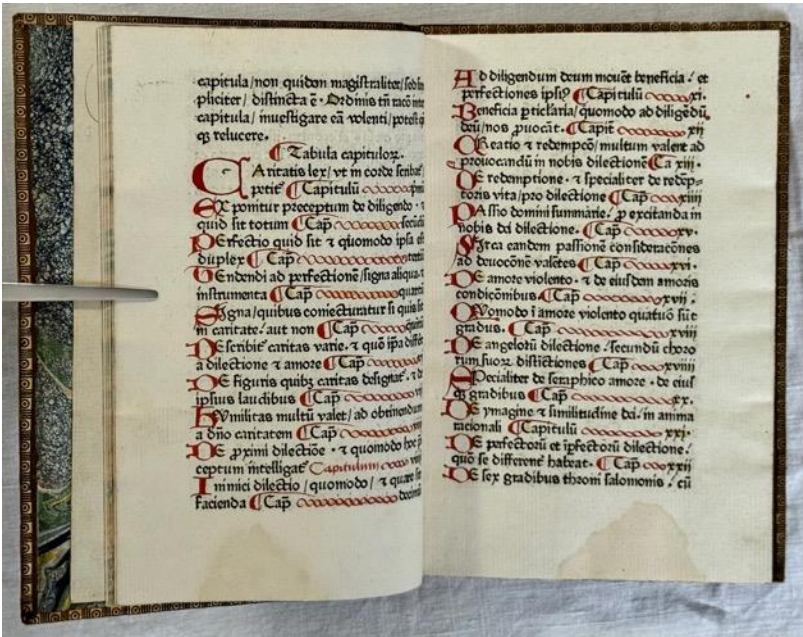 capitula/non quidem magistraliter/sed sim
pliciter/ distincta ē · Ordinis tñ racō inter
capitula/ inuestigare eā volenti/potest q̄
q̄ relucere.
¶ Tabula capituloꝝ.
CAritatis lex/ vt in corde scribat̉
petit̉ ¶ Capitulū primū
EXponitur preceptum de diligendo · ⁊
quid sit totum ¶ Cap̄ secūdū
PErfectio quid sit ⁊ quomodo ipsa est
duplex ¶ Cap̄ tertiū
TEndendi ad perfectionē/signa aliqua ⁊
instrumenta ¶ Cap̄ quartū
SIgna/quibus coniecturatur si quis sit
in caritate/ aut non ¶ Cap̄ quintū
DEscribit̉ caritas varie · ⁊ quō ip̄a differt
a dilectione ⁊ amore ¶ Cap̄ vi
DE figuris quibꝫ caritas designat̉ · ⁊ de
ipsius laudibus ¶ Cap̄ vij
HVmilitas multū valet/ ad obtinendum
a dño caritatem ¶ Cap̄
DE ꝓximi dilectiōe · ⁊ quomodo hoc p̄
ceptum intelligat̉ Capitulum
Inimici dilectio/quomodo/ ⁊ quare sit
facienda ¶ Cap̄ decimū
AD diligendum deum mouēt beneficia / et
perfectiones ipsiꝰ ¶ Capitulū xi.
Beneficia ꝑticlaria/quomodo ad diligēdū
deū/nos ꝓuocāt. ¶ Capit̄ xij
CReatio ⁊ redempcō/ multum valent ad
prouocandū in nobis dilectionē ¶ Ca xiij.
DE redemptione · ⁊ specialiter de redēp-
toris vita/pro dilectione ¶ Cap̄ xiiij
PAssio domini summarie/ ꝓ excitanda in
nobis dei dilectione. ¶ Cap̄ xv.
CIrca eandem passionē consideracōnes
ad deuocōnē valētes ¶ Cap̄ xvi.
DE amore violento · ⁊ de eiusdem amoris
condicōnibus ¶ Cap̄ xvij.
QVomodo ī amore violento quatuō sūt
gradus. ¶ Cap̄ xviij
DE angeloꝝ dilectione/secundū choro
rum suoꝝ distīctiones ¶ Cap̄ xviiij
SPecialiter de seraphico amore · de eius
qꝫ gradibus ¶ Cap̄ xx.
DE ymagine ⁊ similitudine dei/ in anima
racionali ¶ Capitulū xxi.
DE perfectoꝝ et īpfectoꝝ dilectione/
quō se differenť habeat. ¶ Cap̄ xxij
DE sex gradibus throni salomonis / cū